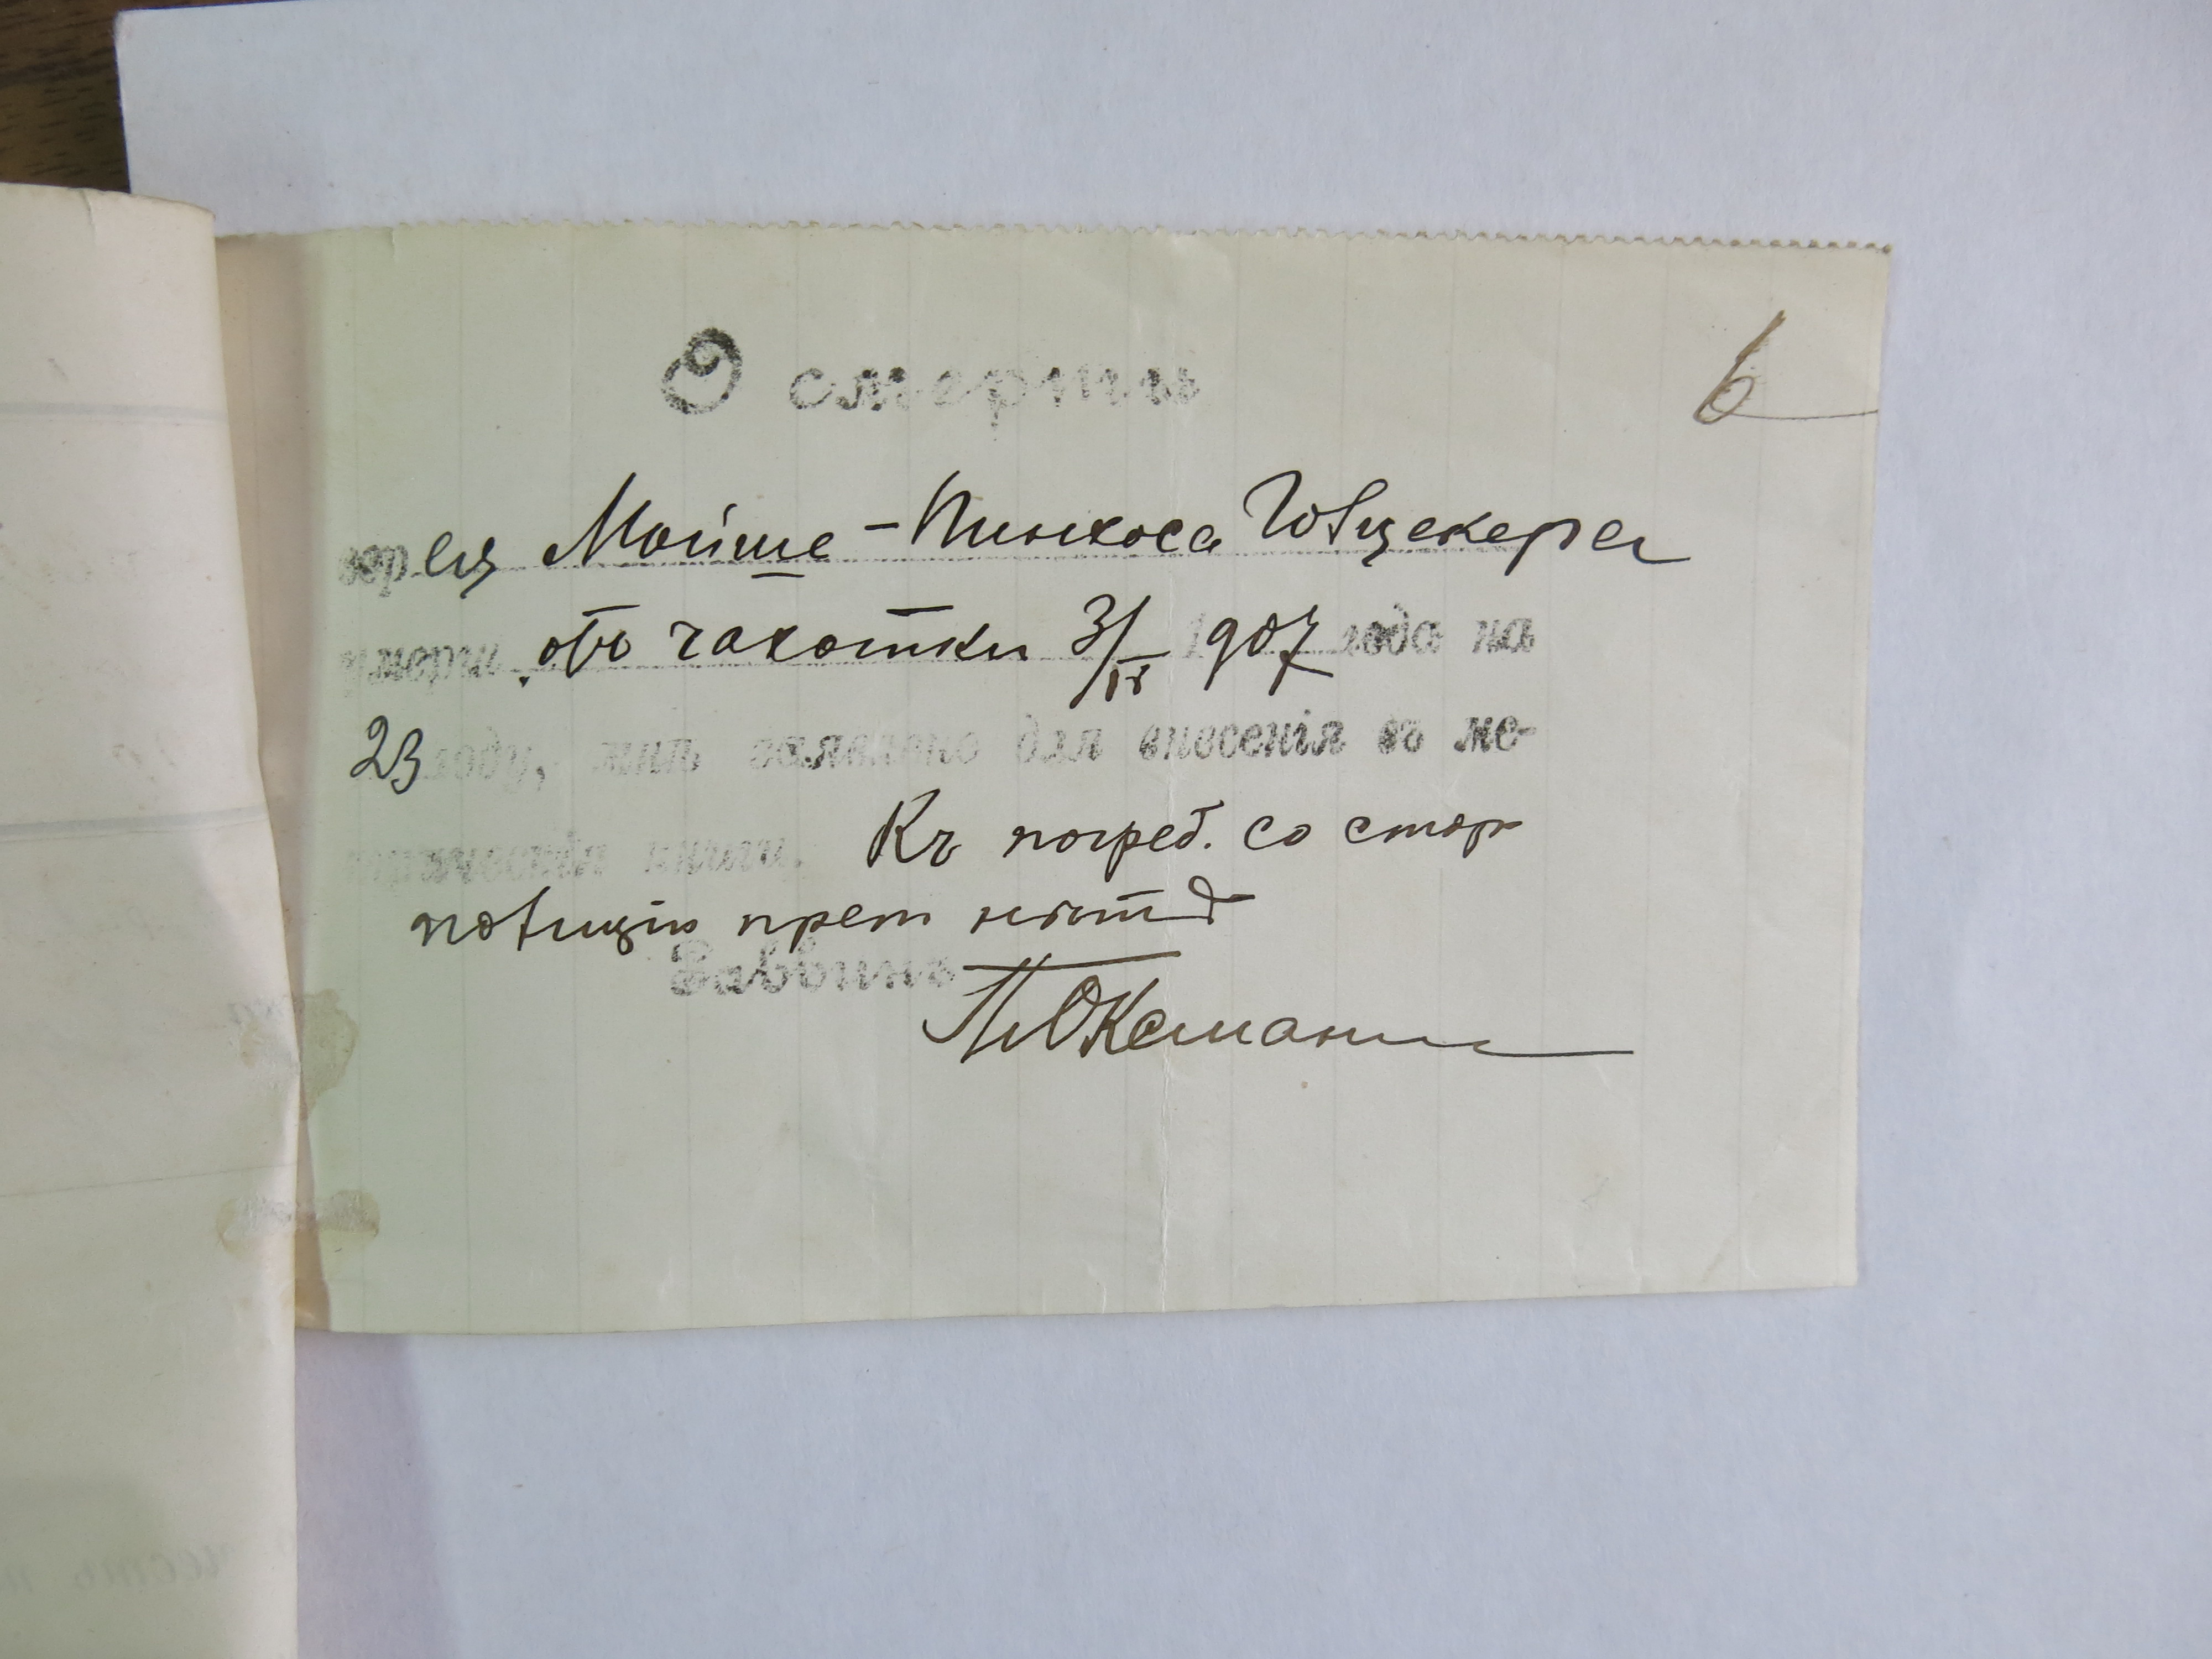 О смерти
6
еврея Мойше-Пинхоса Ювцекера
умерш. отъ чахотки 3/IV 1907 года на
23 году, мнѣ заявлено для внесенія въ ме-
трическія книги. Къ погреб. со стор
полиціи преп нѣтъ
Раввинъ